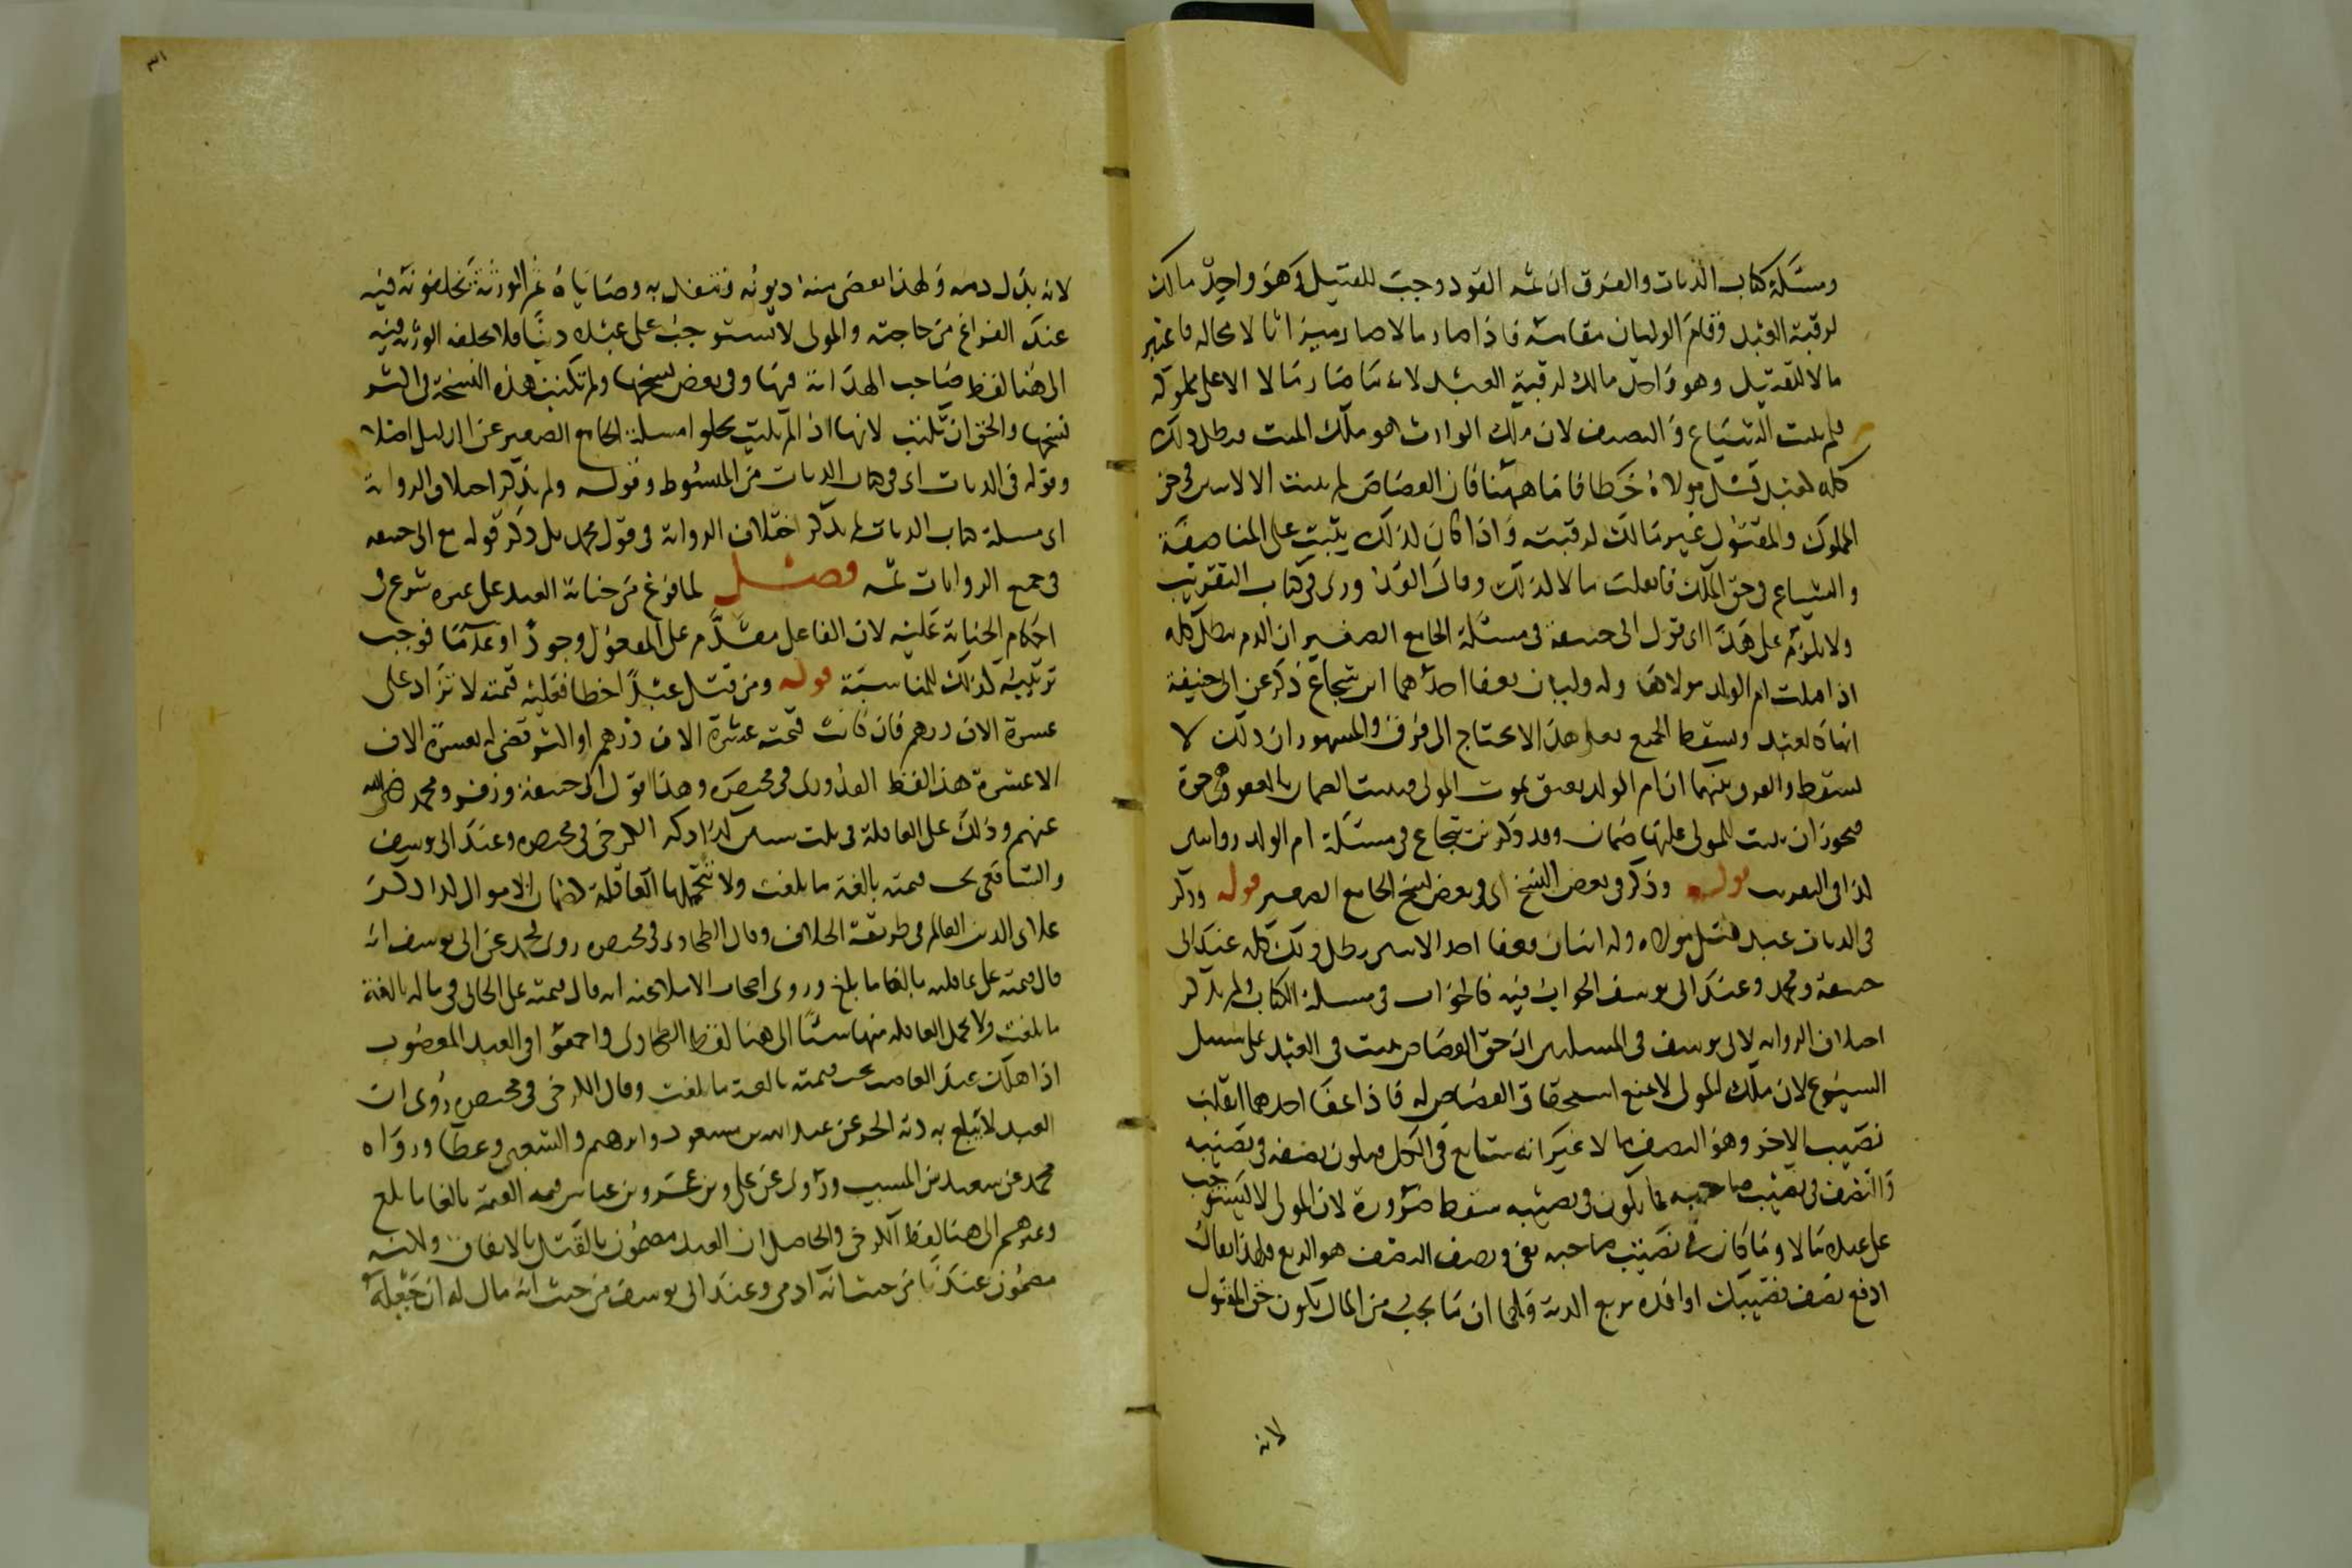 ومسئلة كتاب الديات والفرق ان ثمه القود وجب للقتيل وهو واحد مالك
لرقبة العبد وقام الوليان مقامه فاذا صار مالا صار ميراثا لا محاله فاعتبر
مالا للقتيل وهو واحد مالك لرقبة العبد لانه ما صار مالا الا على ملوكه
فلم يثبت الشياع والنصف لان ملك الوارث هو ملك الميت فبطل ذلك
كله لعبد قتل مولاه خطا فاما ههنا فان القصاص لم يثبت الا لاثنين في حق
المملوك والمقتول غير مالك لرقبته واذا كان لذلك يثبت على المناصفة
والشياع في حق الملك فانقلب مالا لذلك وقال القدوري في كتاب التقريب
ولا يلزم على هذا اى قول ابى حنيفة في مسئلة الجامع الصغير ان الدم يبطل كله
اذا قتلت ام الولد مولاها وله وليان فعفا احدهما ابن شجاع ذكر عن ابى حنيفة
انها كالعبد ويسقط الجميع فعلى هذا لا يحتاج الى فرق والمشهور ان ذلك لا
يسقط والفرق بينهما ان ام الولد يعتق بموت المولى ويثبت الضمان بالعفو وهى حرة
فيجوز ان يثبت للمولى عليها ضمان وقد ذكر بن شجاع في مسئلة ام الولد روايتين
كذا في التقريب قوله وذكر في بعض النسخ اى في بعض نسخ الجامع الصغير قوله وذكر
في الديات عبد قتل مولاه وله ابنان فعفا احد الابنين بطل ذلك كله عند ابى
حنيفة ومحمد وعند ابى يوسف الجواب فيه كالجواب في مسئلة الكتاب ولم يذكر
اختلاف الرواية لابى يوسف في المسئلتين ان حق القصاص يثبت في العبد على سبيل
الشيوع لان ملك المولى لا يمنع استحقاق القصاص له فاذا عفا احدهما انقلب
نصيب الاخر وهو النصف مالا غير انه شايع في الكل فيكون نصفه في نصيبه
والنصف في نصيب صاحبه فما يكون في نصيبه سقط ضرورة لان المولى لا يستوجب
على عبده مالا وما كان في نصيب صاحبه بقى ونصف النصف هو الربع فلهذا يقال
ادفع نصف نصيبك او افده بربع الدية ولهما ان ما يجب من المال يكون حق المقتول
لانه
لانه بدل دمه ولهذا يقضى منه ديونه وتنفذ به وصاياه ثم الورثة يخلفونه فيه
عند الفراغ من حاجته والمولى لا يستوجب على عبده دينا فلا يخلفه الورثه فيه
الى هنا لفظ صاحب الهداية فيها وفي بعض نسخها ولم تكتب هذه النسخة في اكثر
نسخها والحق ان تكتب لانها اذا لم تكتب يخلو مسئلة الجامع الصغير عن الدليل اصلا
وقوله في الديات اى في كتاب الديات من المبسوط وقوله ولم يذكر اختلاف الرواية
اى مسئلة كتاب الديات لم يذكر اختلاف الرواية في قول محمد بل ذكر قوله مع ابى حنيفة
في جميع الروايات ثمه فصل لما فرغ من جناية العبد على غيره شرع في
احكام الجناية عليه لان الفاعل مقدم على المفعول وجودا او عدما فوجب
ترتيبه كذلك للمناسبة قوله ومن قتل عبدا خطا فعليه قيمته لا تزاد على
عشرة الاف درهم فان كانت قيمته عشرة الاف درهم او اكثر قضى له بعشرة الاف
الا عشرة هذا لفظ القدورى في مختصره وهذا قول ابى حنيفة وزفر ومحمد رضى الله
عنهم وذلك على العاقلة في ثلث سنين كذا ذكره الكرخى في مختصره وعند ابى يوسف
والشافعى تجب قيمته بالغة ما بلغت ولا تتحملها العاقلة كضمان الاموال كذا ذكر
علاى الدين العالم في طريقة الخلاف وقال الطحاوى في مختصره روى محمد عن ابى يوسف انه
قال قيمته على عاقلته بالغا ما بلغ وروى اصحاب الاملا عنه انه قال قيمته على الجانى في ماله بالغة
ما بلغت ولا تحمل العاقله منها شيئا الى هنا لفظ الطحاوى واجمعوا في العبد المغصوب
اذا هلك عند الغاصب تجب قيمته بالغة ما بلغت وقال الكرخى في مختصره روى ان
العبد لا يبلغ به دية الحر عن عبد الله بن مسعود وابرهيم والشعبى وعطا ورواه
محمد عن سعيد بن المسيب وروى عن على وبن عمر وبن عباس قيمه بالغا ما بلغ
وغيرهم الى هنا لفظ الكرخى والحاصل ان العبد مضمون بالقتل بالاتفاق ولانه
مضمون عندنا من حيث انه ادمى وعند ابى يوسف من حيث انه مال له ان تجعله